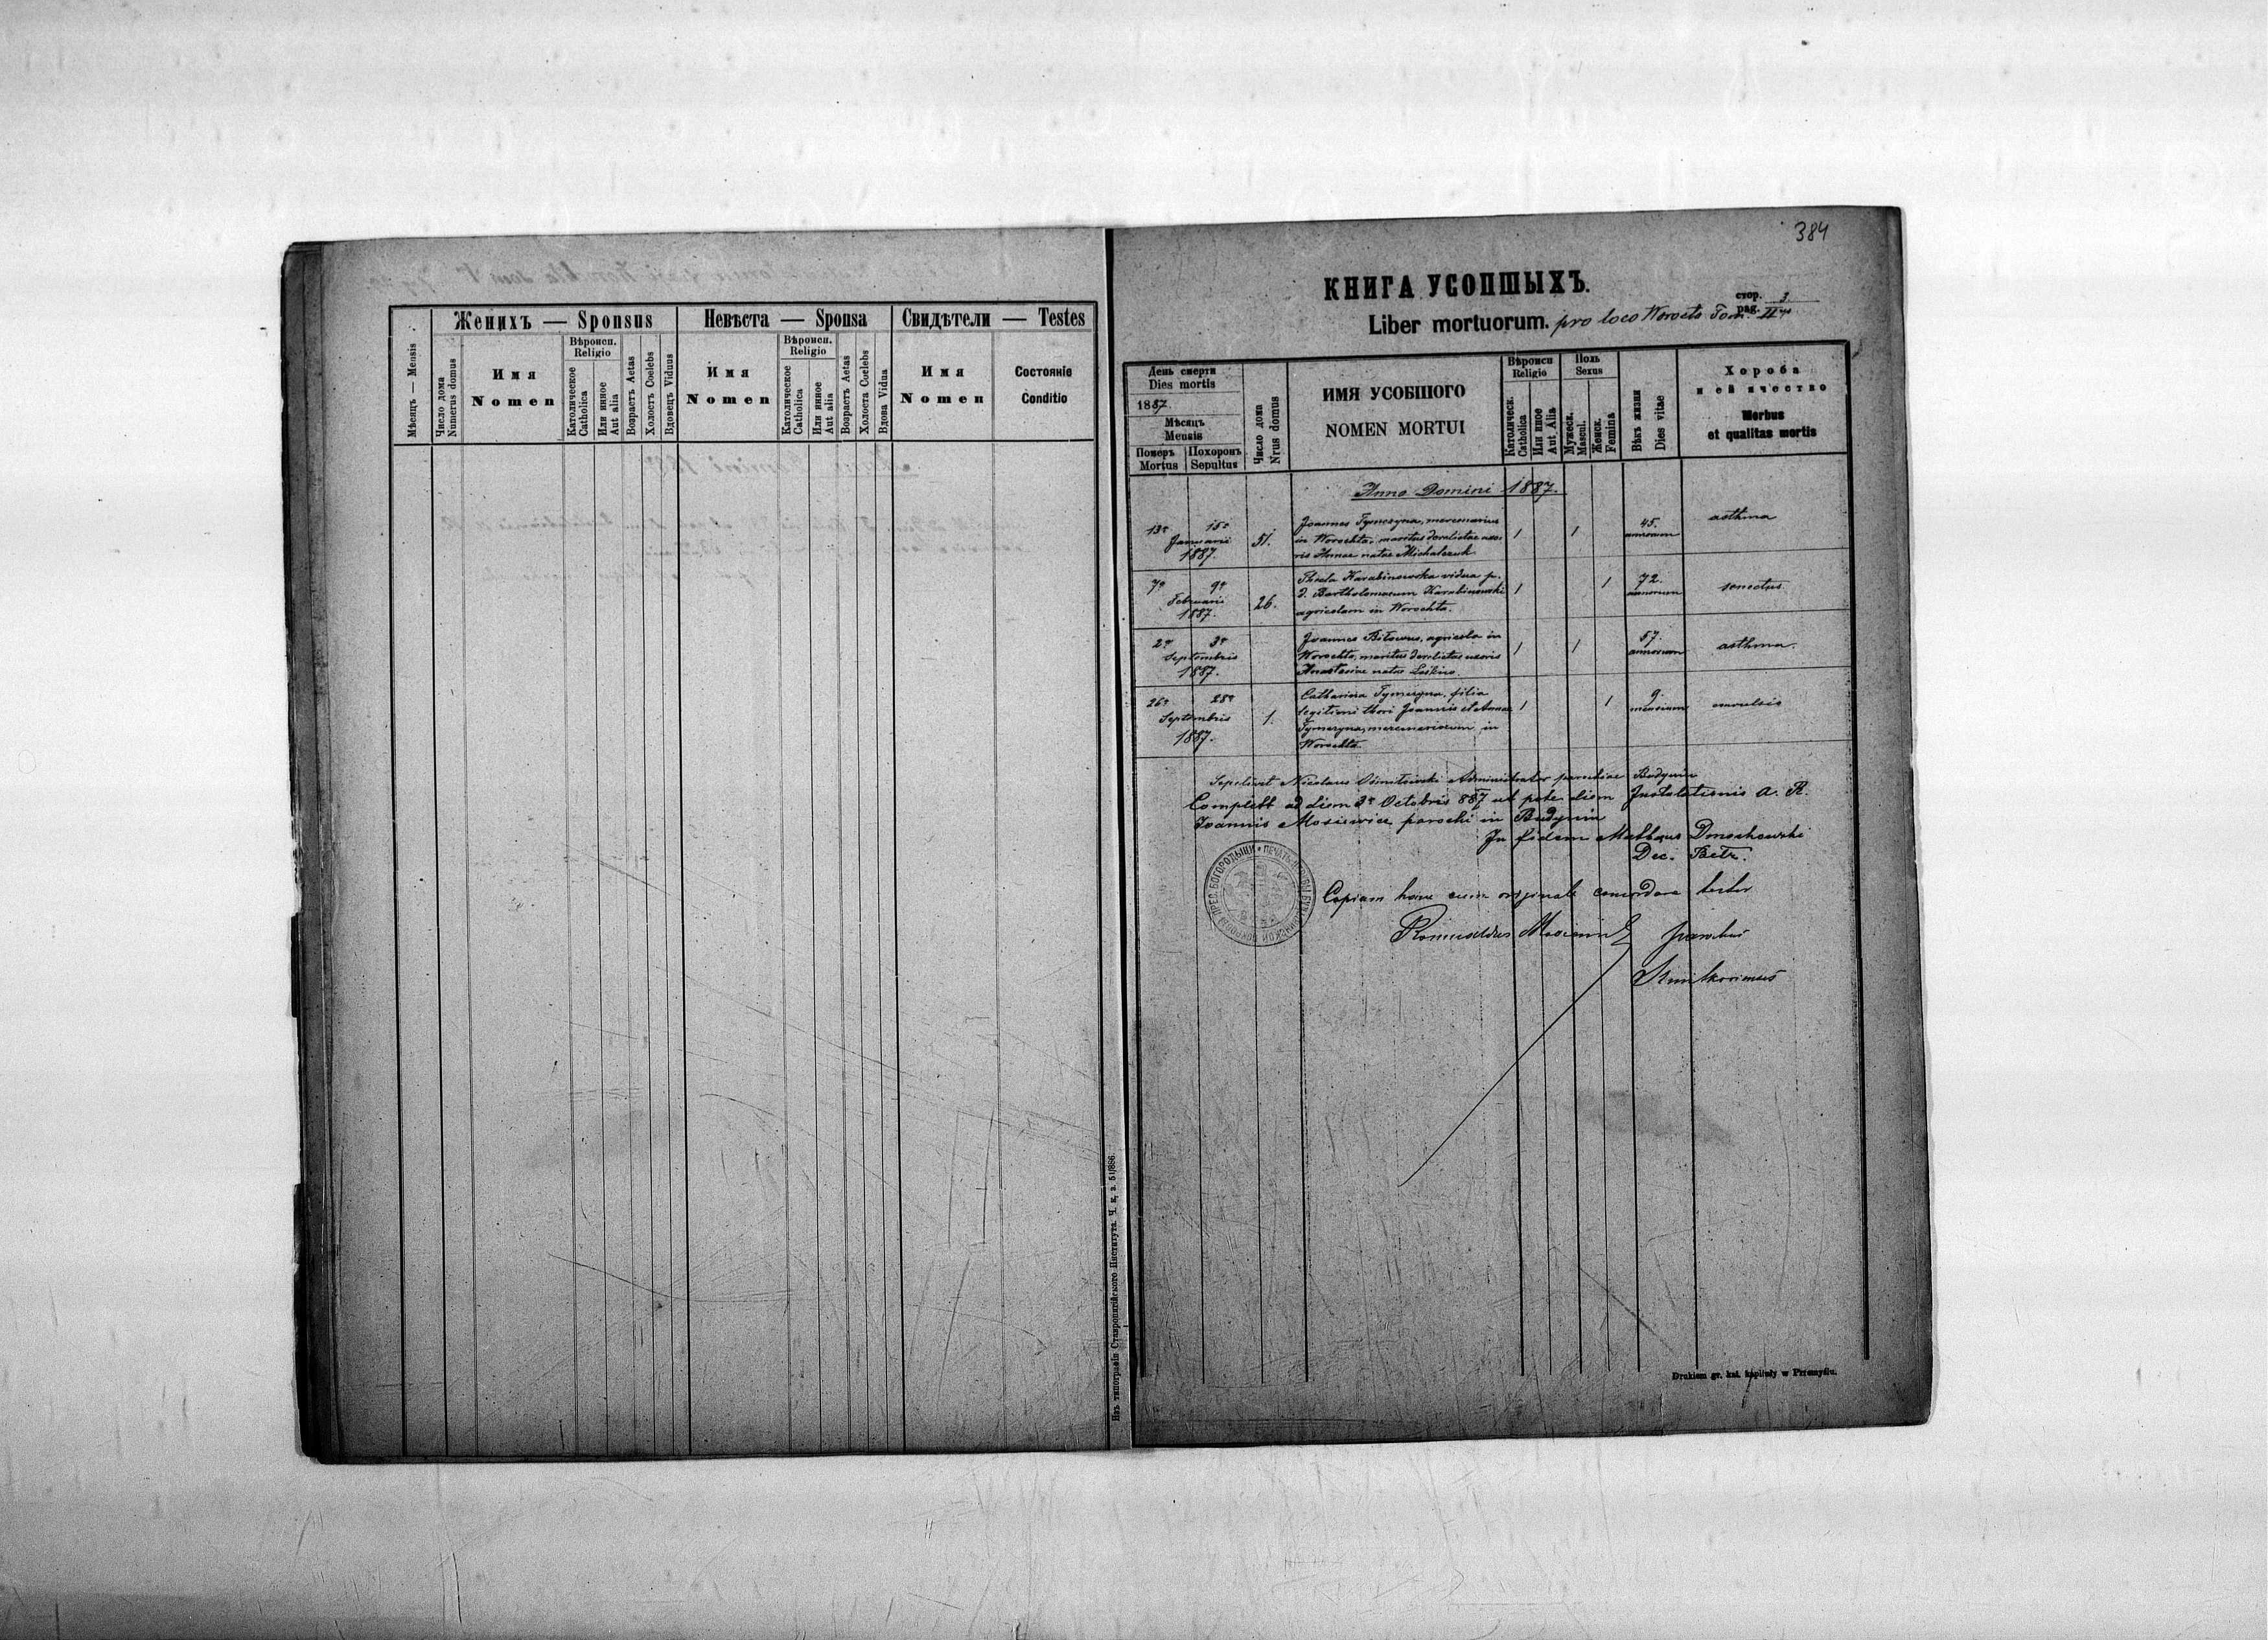 Женихъ — Sponsus
Невѣста — Sponsa
Свидѣтели — Testes
Мѣсяць — Mensis
Число дома
Numerus domus
Имя
Nomen
Вѣроисп.
Religio
Католическое
Catholica
Или инное
Aut alia
Возрастъ Aetas
Холостъ Coelebs
Вдовецъ Viduus
Имя
Nomen
Вѣроисп.
Religio
Католическое
Catholica
Или инное
Aut alia
Возрастъ Aetas
Холоста Coelebs
Вдова Vidua
Имя
Nomen
Состояніе
Conditio
Изъ типографіи Ставропигійского Института. Ч. к. з. 51/886.
384
КНИГА УСОПШЫХЪ.
стор. 3
pag.
Liber mortuorum. pro loco Worochta Tom. II
День смерти
Dies mortis
1887.
Мѣсяцъ
Mensis
Померъ
Mortus
Похоронъ
Sepultus
Число дома
Nrus domus
ИМЯ УСОБШОГО
NOMEN MORTUI
Вѣроисп
Religio
Католическ.
Catholica
Или иное
Aut Alia
Полъ
Sexus
Мужеск.
Mascul.
Женск.
Femina
Вѣкъ жизни
Dies vitae
Хороба
и ей ячество
Morbus
et qualitas mortis
Anno Domini 1887.
13a 15a
Januarii
1887.
51.
Joannes Tymczyna, mercenarius
in Worochta, maritus derelictae uxo
ris Annae natae Michalczuk
1 1
45.
annorum
asthma
7a 9a
Februarii
1887.
26.
Thecla Karabinowska vidua p.
d. Bartholomaeum Karabinowski
agricolam in Worochta.
1 1
72.
annorum
senectus
2a 3a
Septembris
1887.
Joannes Biłowus, agricola in
Worochta, maritus derelictae uxoris
Anastasiae natae
1 1
57.
annorum
asthma.
26a 28a
Septembris
1887.
1.
Catharina Tymczyna, filia
legitimi thori Joannis et Annae
Tymczyna, mercenariorum in
Worochta.
1 1
9.
mensium
Sepelivit Nicolaus Administrator parochiae Budynin
ad diem 3a Octobris 887 ut pote diem Instalationis A. R.
Joannis Mosiewicz parochi in Budynin
In fidem Mathaeus Dmochowski
Dec.
Copiam hanc cum originali concordare testor
Romualdus parochus
Drukiem gr. kat. kapituły w Przemyślu.